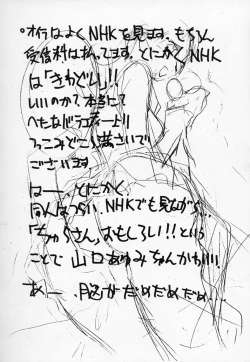 °オイラはよくNHKを見ます。もちろん
受信料は払ってます。とにかくNHK
は「きわどい」!!
いいのか?本当に
へたなドラマより
つっこみどころ満さいで
ございます
はー、とにかく、
同人はつらい、NHKでも見ながら…
「ちゅらさん」おもしろい!!という
ことで 山口あゆみちゃんかわいい
あー、脳がだめだめだめ…